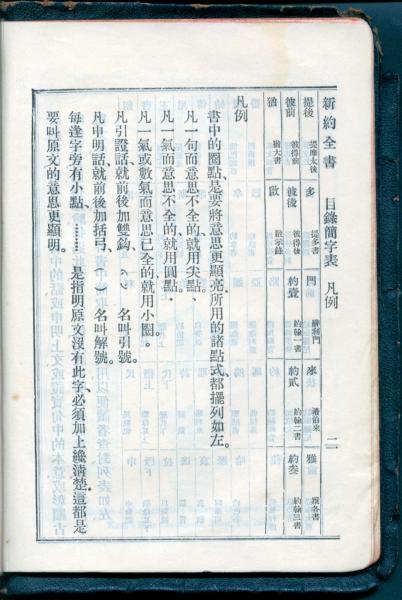 新約全書　目錄簡字表　凡例　二
提後　提摩太後　多　提多書　門　腓利門　來　希伯來　雅　雅各書
彼前　彼得前　彼後　彼得後　約壹　約翰一書　約貳　約翰二書　約叁　約翰三書
猶　猶大書　啟　啟示錄
凡例
書中的圈點是要將意思更顯亮所用的諸點式、都擺列如左。
凡一句而意思不全的、就用尖點、
凡一氣而意思不全的、就用圓點．
凡一氣或數氣而意思已全的、就用小圈。
凡引證話就前後加雙鈎、名叫引號。
凡申明話就前後加括弓、（）名叫解號。
每逢字旁有小點、……是指明原文沒有此字、必須加上纔清楚、這都是
要叫原文的意思更顯明。